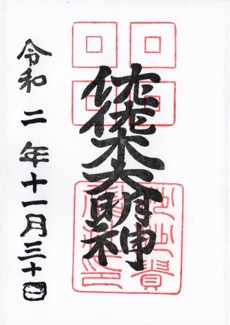 佐佐木大明神
令和二年十一月三十日